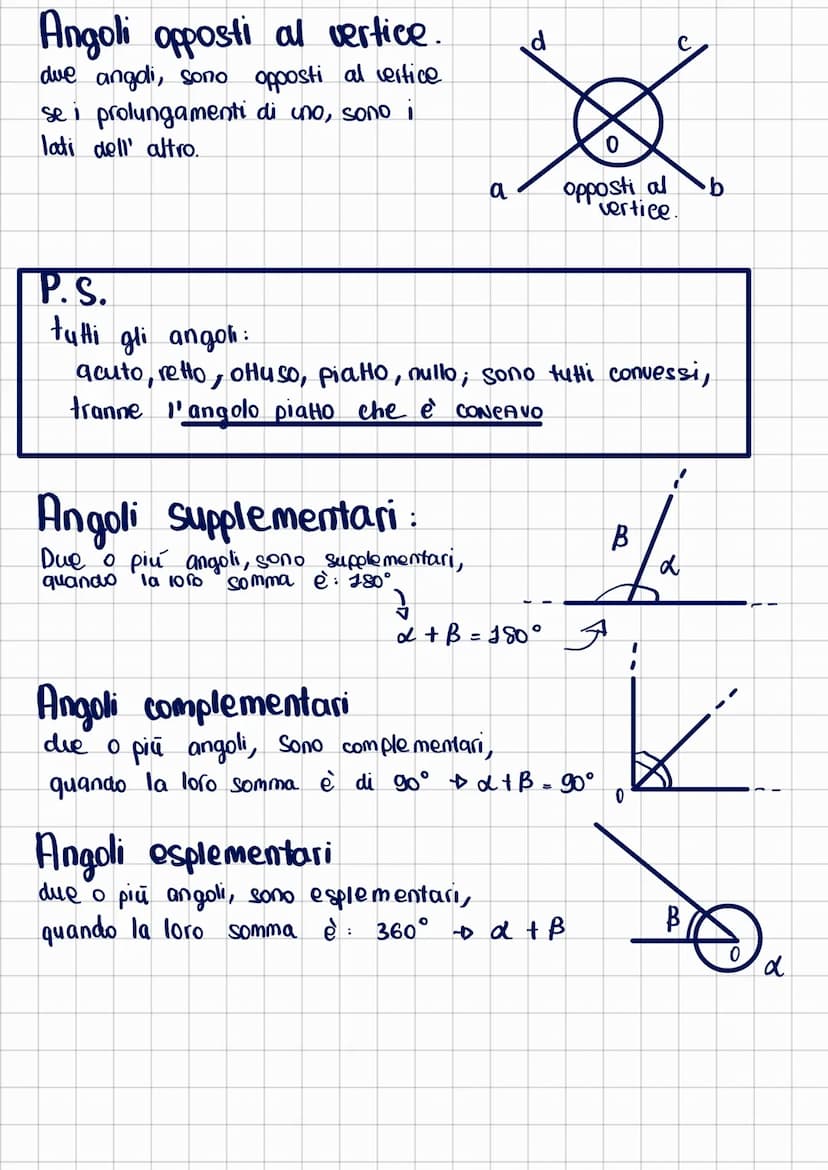 Angoli opposti al vertice.
due angoli, sono opposti al vertice
se i prolungamenti di uno, sono i
lati dell' altro.
d
c
O
a
b
opposti al
vertice.
P.S.
tutti gli angoli:
acuto, retto, ottuso, piatto, nullo; sono tutti convessi,
tranne l'angolo piatto che è CONCAVO
Angoli supplementari:
Due o più angoli, sono supplementari,
quando la loro somma è: 180°
α + β = 180°
β
α
Angoli complementari
due o più angoli, sono complementari,
quando la loro somma è di 90° → α + β = 90°
O
Angoli esplementari
due o più angoli, sono esplementari,
quando la loro somma è: 360° → α + β
β
O
α